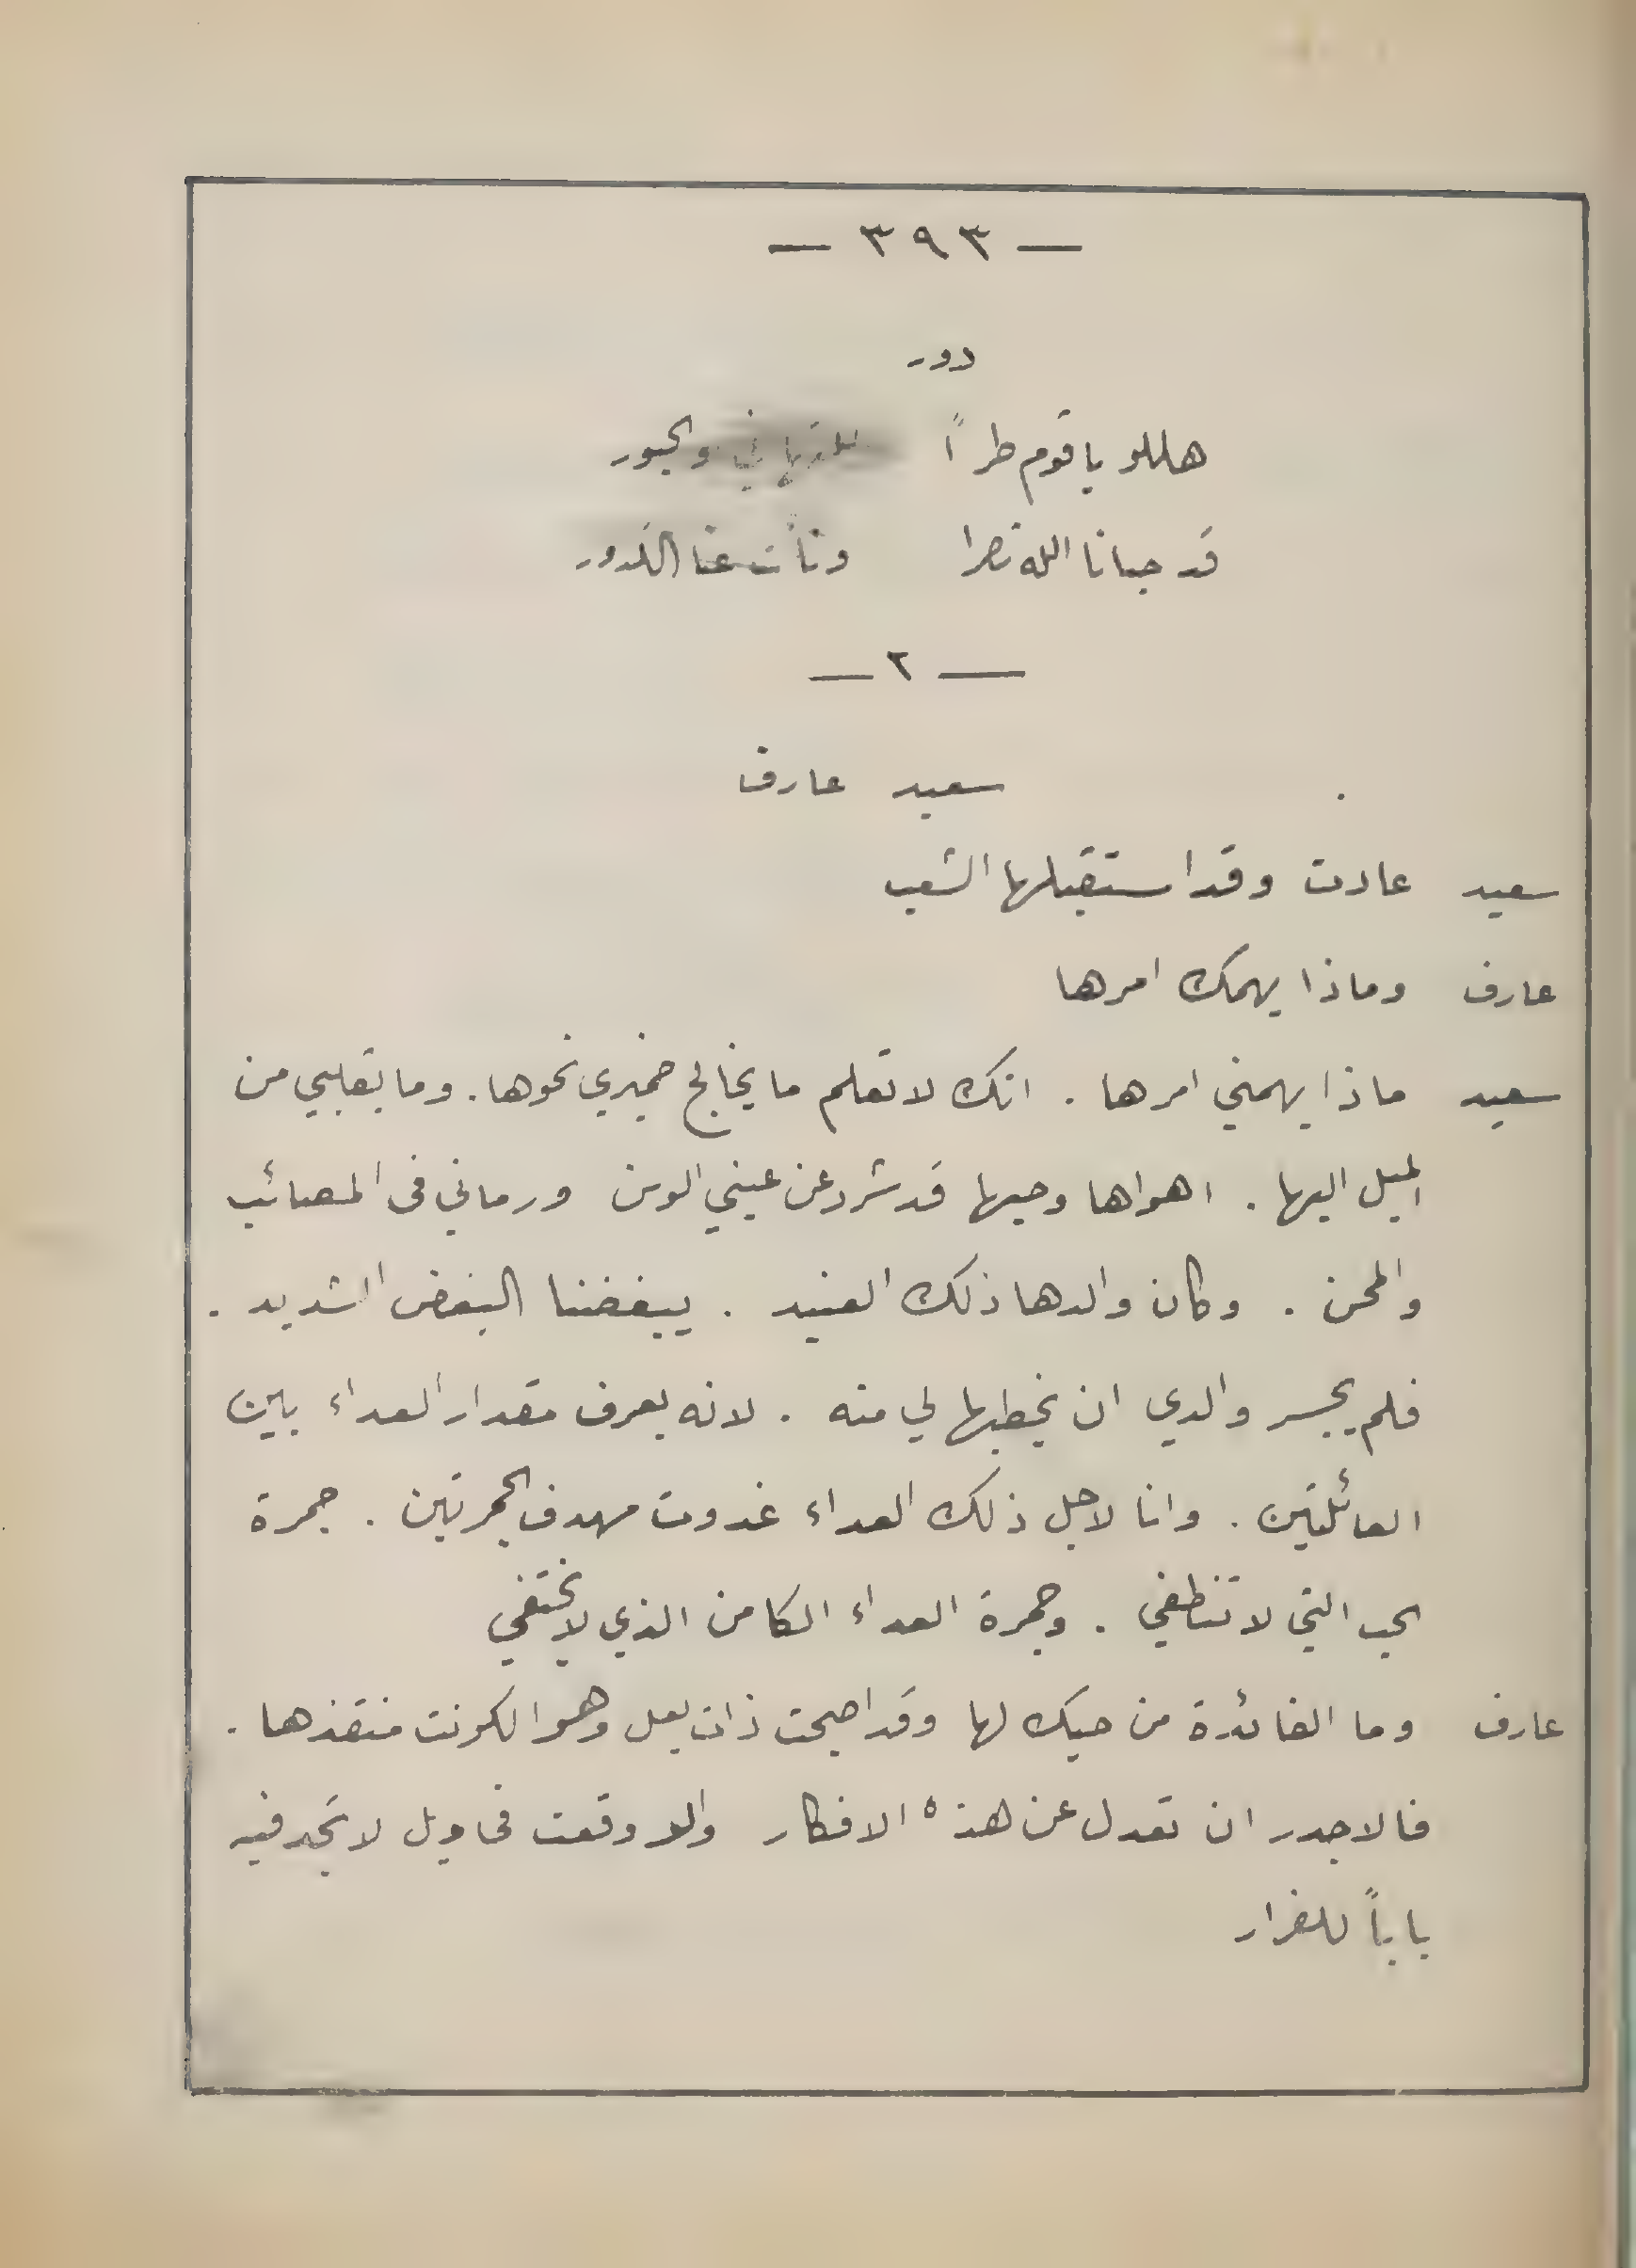 — ٣٩٣ —
دور
هللو يا قوم طراً للتهاني والحبور
قد حبانا الله نصرا ونأت عنا الكدور
— ٢ —
سعيد عارف
سعيد عادت وقد استقبلها الشعب
عارف وماذا يهمك امرها
سعيد ماذا يهمني امرها . انك لا تعلم ما يخالج ضميري نحوها . وما بقلبي من
الميل اليها . اهواها وحبها قد شرد عن عيني الوسن ورماني في المصائب
والمحن . وكان والدها ذلك العنيد . يبغضنا البغض الشديد .
فلم يجسر والدي ان يخطبها لي منه . لانه يعرف مقدار العداء بين
العائلتين . وانا لاجل ذلك العداء غدوت مهدف الجمرتين . جمرة
الحب التي لا تنطفي . وجمرة العداء الكامن الذي لا يختفي
عارف وما الفائدة من حبك لها وقد اصبحت ذات بعل وهو الكونت منقذها .
فالاجدر ان تعدل عن هذه الافكار والا وقعت في ويل لا تجد فيه
باباً للفرار